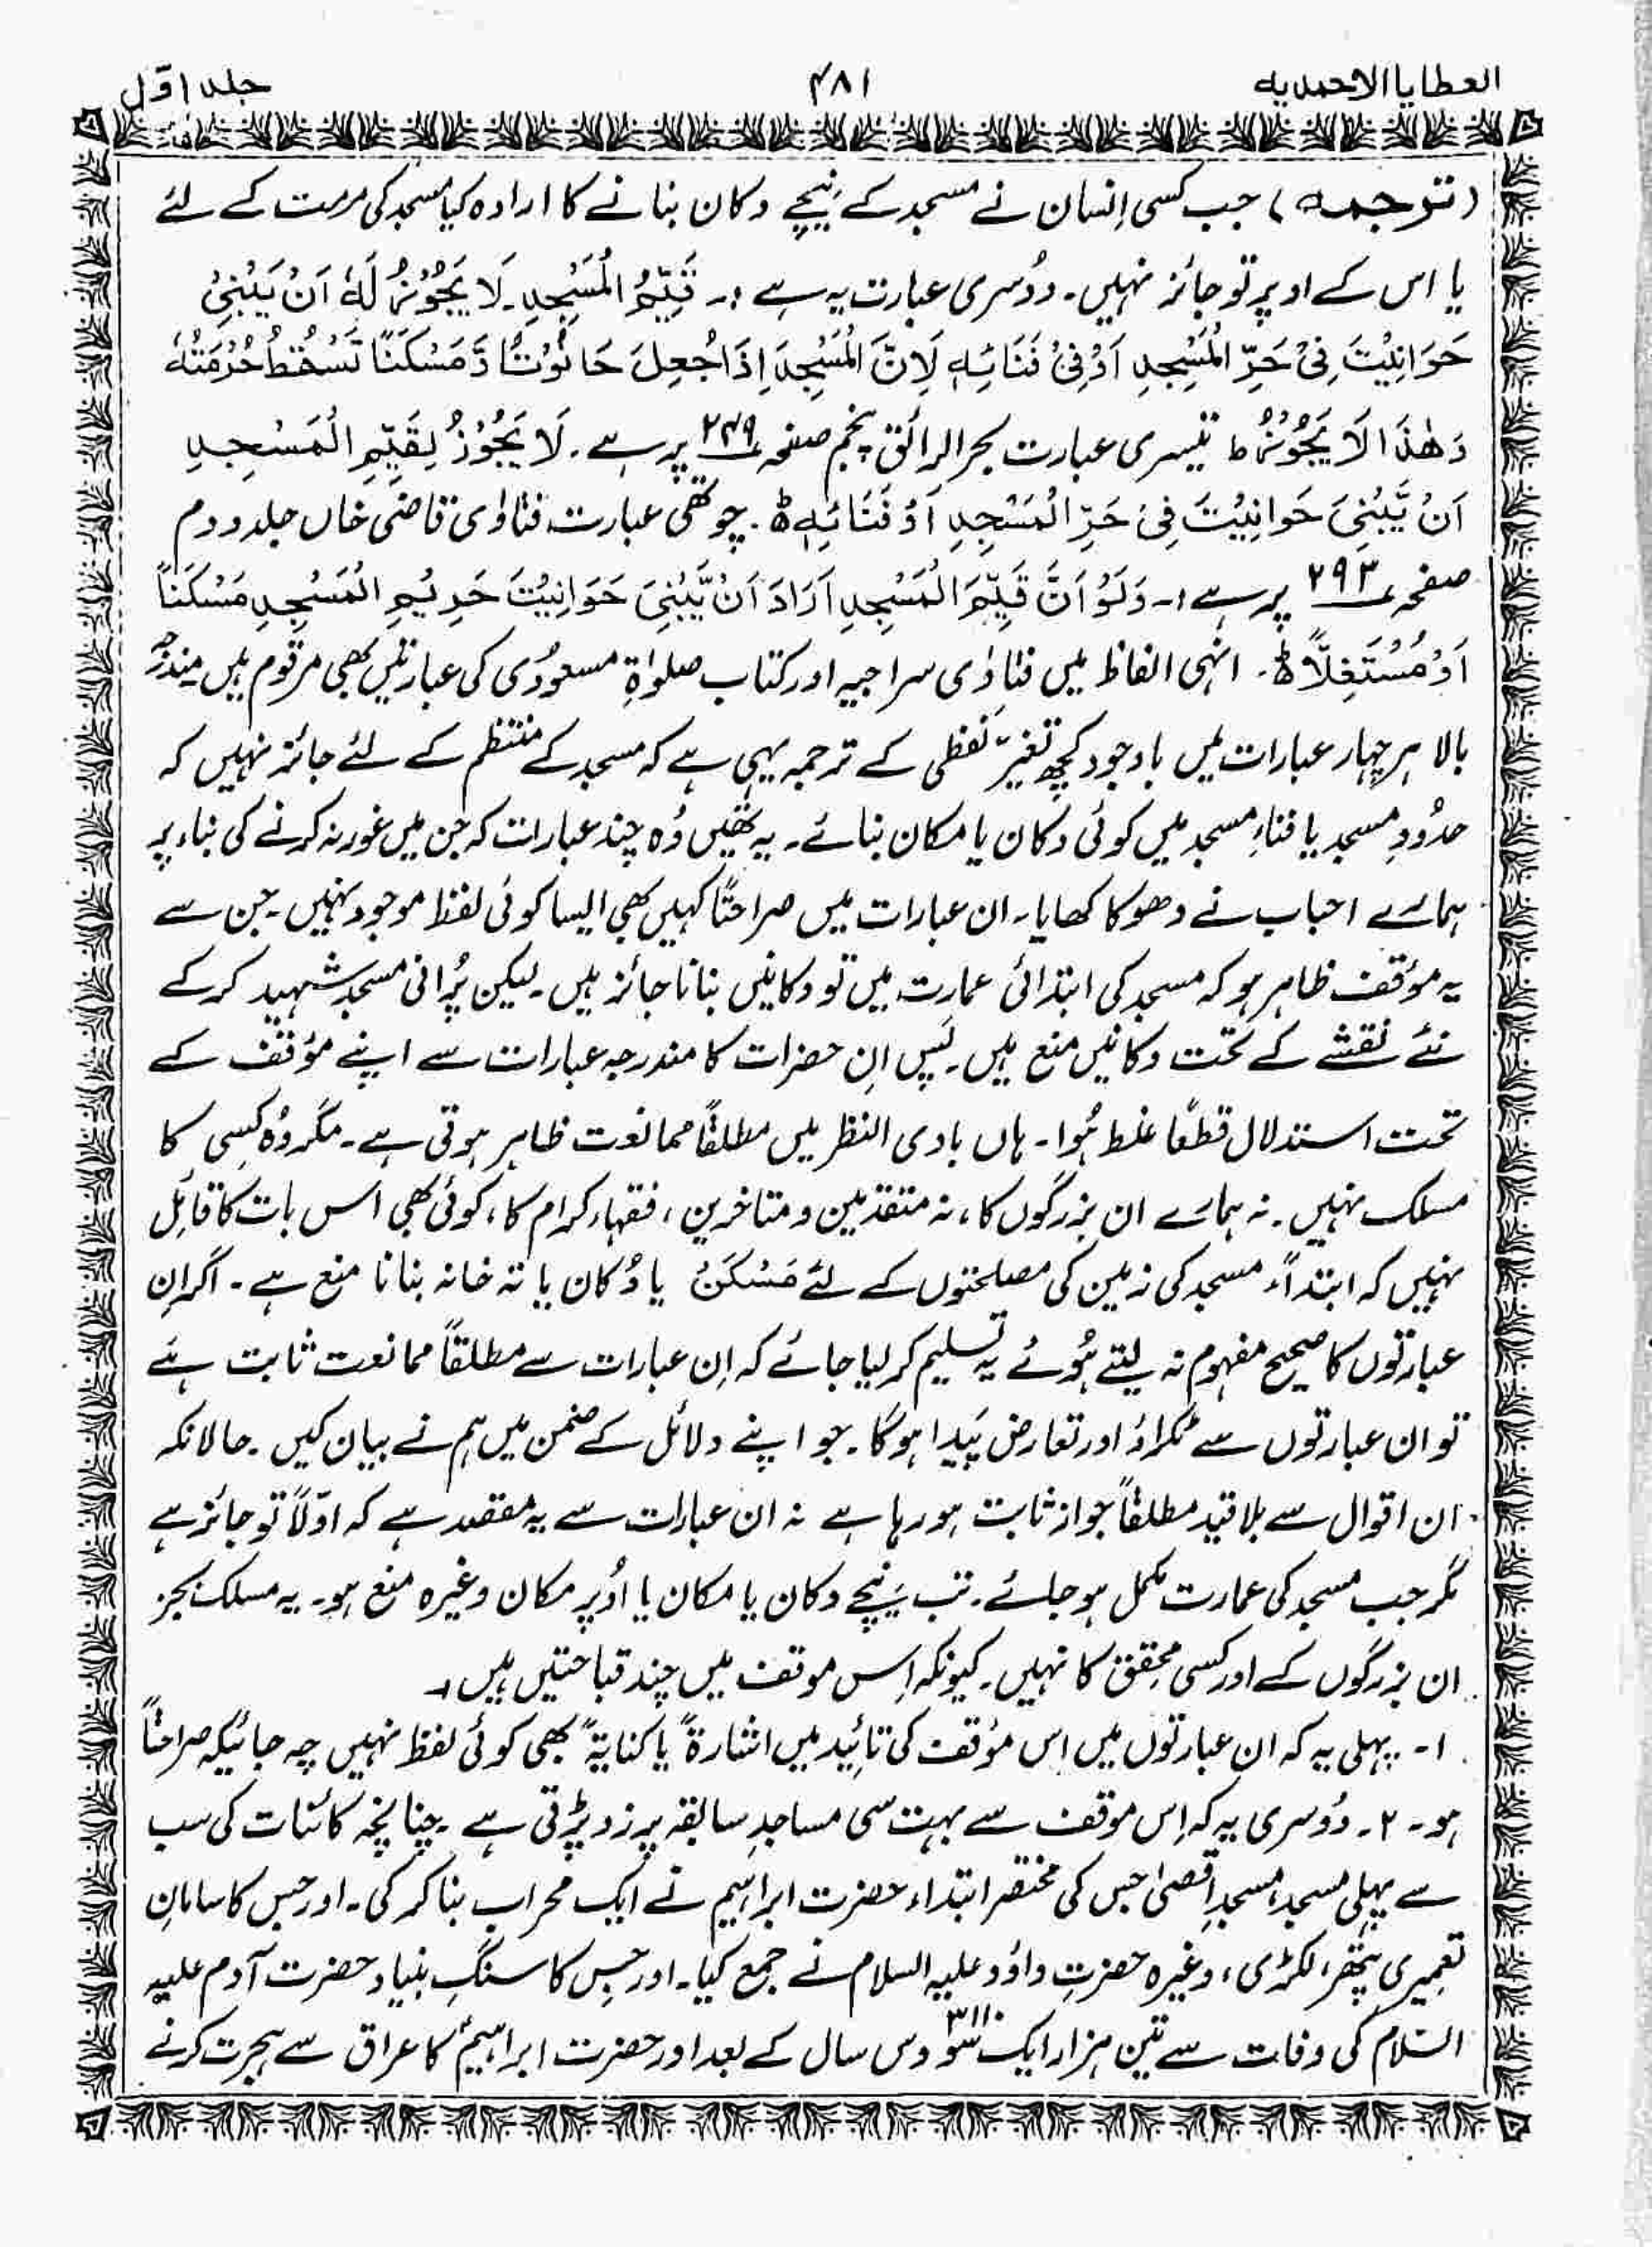 العطایا الاحمدیہ
۴۸۱
جلد اوّل
(ترجمہ) جب کسی اِنسان نے مسجد کے نِیچے دکان بنانے کا ارادہ کیا مسجد کی مرمت کے لئے
یا اس کے اوپر تو جائز نہیں۔ دوُسری عبارت یہ ہے :۔ قَیِّمُ الْمَسْجِدِ۔ لَا یَجُوْزُ لَہٗ اَنْ یَبْنِیْ
حَوَانِیْتَ فِیْ حَدِّ الْمَسْجِدِ اَوْ فِیْ فَنَائِہٖ لَاِنَّ الْمَسْجِدَ اِذَا جُعِلَ حَانُوْتًا وَّمَسْکَنًا تَسْقُطُ حُرْمَتُہٗ
وَھٰذَا لَا یَجُوْزُ ط تیسری عبارت بحر الرائق پنجم صفحہ ۲۴۹ پر ہے۔ لَا یَجُوْزُ لِقَیِّمِ الْمَسْجِدِ
اَنْ یَّبْنِیَ حَوَانِیْتَ فِیْ حَدِّ الْمَسْجِدِ اَوْ فَنَائِہٖ ط۔ چوتھی عبارت فتاوٰی قاضی خاں جلد دوم
صفحہ ۲۹۳ پر ہے :۔ وَلَوْ اَنَّ قَیِّمَ الْمَسْجِدِ اَرَادَ اَنْ یَّبْنِیَ حَوَانِیْتَ حَرِیْمِ الْمَسْجِدِ مَسْکَنًا
اَوْ مُسْتَغِلًّا ط۔ انہی الفاظ میں فتاوٰی سراجیہ اور کتاب صلوٰۃِ مسعوُدی کی عبارتیں بھی مرقوم ہیں مندرجہ
بالا ہر چہار عبارات میں باوجود کچھ تغیّر لفظی کے ترجمہ یہی ہے کہ مسجد کے منتظم کے لئے جائز نہیں کہ
حدُودِ مسجد یا فناءِ مسجد میں کوئی دکان یا مکان بنائے۔ یہ تھیں وُہ چند عبارات کہ جن میں غور نہ کرنے کی بناء پر
ہمارے احباب نے دھوکا کھایا۔ ان عبارات میں صراحتًا کہیں بھی ایسا کوئی لفظ موجود نہیں۔ جن سے
یہ مؤقف ظاہر ہو کہ مسجد کی ابتدائی عمارت میں تو دکانیں بنانا جائز ہیں۔ لیکن پُرانی مسجد شہید کر کے
نئے نقشے کے تحت دکانیں منع ہیں۔ پَس اِن حضرات کا مندرجہ عبارات سے اپنے مؤقف کے
تحت استدلال قطعًا غلط ہُوا۔ ہاں بادی النظر میں مطلقًا ممانعت ظاہر ہوتی ہے۔ مگر وُہ کِسی کا
مسلک نہیں۔ نہ ہمارے ان بزرگوں کا، نہ متقدمین و متاخرین، فقہاء کرام کا، کوئی بھی اس بات کا قائِل
نہیں کہ ابتداءً مسجد کی زمین کی مصلحتوں کے لئے مَسْکَنْ یا دُکان یا تہ خانہ بنانا منع ہے۔ اگر اِن
عبارتوں کا صحیح مفہوم نہ لیتے ہُوئے یہ تسلیم کر لیا جائے کہ اِن عبارات سے مطلقاً ممانعت ثابت ہے
تو ان عبارتوں سے ٹکراؤ اور تعارض پَیدا ہو گا۔ جو اپنے دلائل کے ضمن میں ہم نے بیان کیں۔ حالانکہ
ان اقوال سے بلا قید مطلقاً جواز ثابت ہو رہا ہے نہ ان عبارات سے یہ مقصد ہے کہ اوّلاً تو جائز ہے
مگر جب مسجد کی عمارت مکمل ہو جائے۔ تب نِیچے دکان یا مکان یا اوُپر مکان وغیرہ منع ہو۔ یہ مسلک بجز
ان بزرگوں کے اور کسی محقق کا نہیں۔ کیونکہ اِس موقف میں چند قباحتیں ہیں۔
۱۔ پہلی یہ کہ ان عبارتوں میں اِس مؤقف کی تائید میں اشارۃً یا کنایۃً بھی کوئی لفظ نہیں چہ جائیکہ صراحتاً
ہو۔ ۲۔ دوُسری یہ کہ اِس موقف سے بہت سی مساجدِ سابقہ پر زد پڑتی ہے۔ چنانچہ کائنات کی سب
سے پہلی مسجد، مسجدِ اقصیٰ جس کی مختصر ابتداء حضرت ابراہیم نے ایک محراب بنا کر کی۔ اور جس کا سامانِ
تعمِیری پتھر، لکڑی، وغیرہ حضرتِ داؤد علیہ السلام نے جمع کیا۔ اور جِس کا سنگِ بنیاد حضرت آدم علیہ
السّلام کی وفات سے تین ہزار ایک سو دس ۳۱۱۰ سال کے بعد اور حضرت ابراہیمؑ کا عراق سے ہجرت کرنے